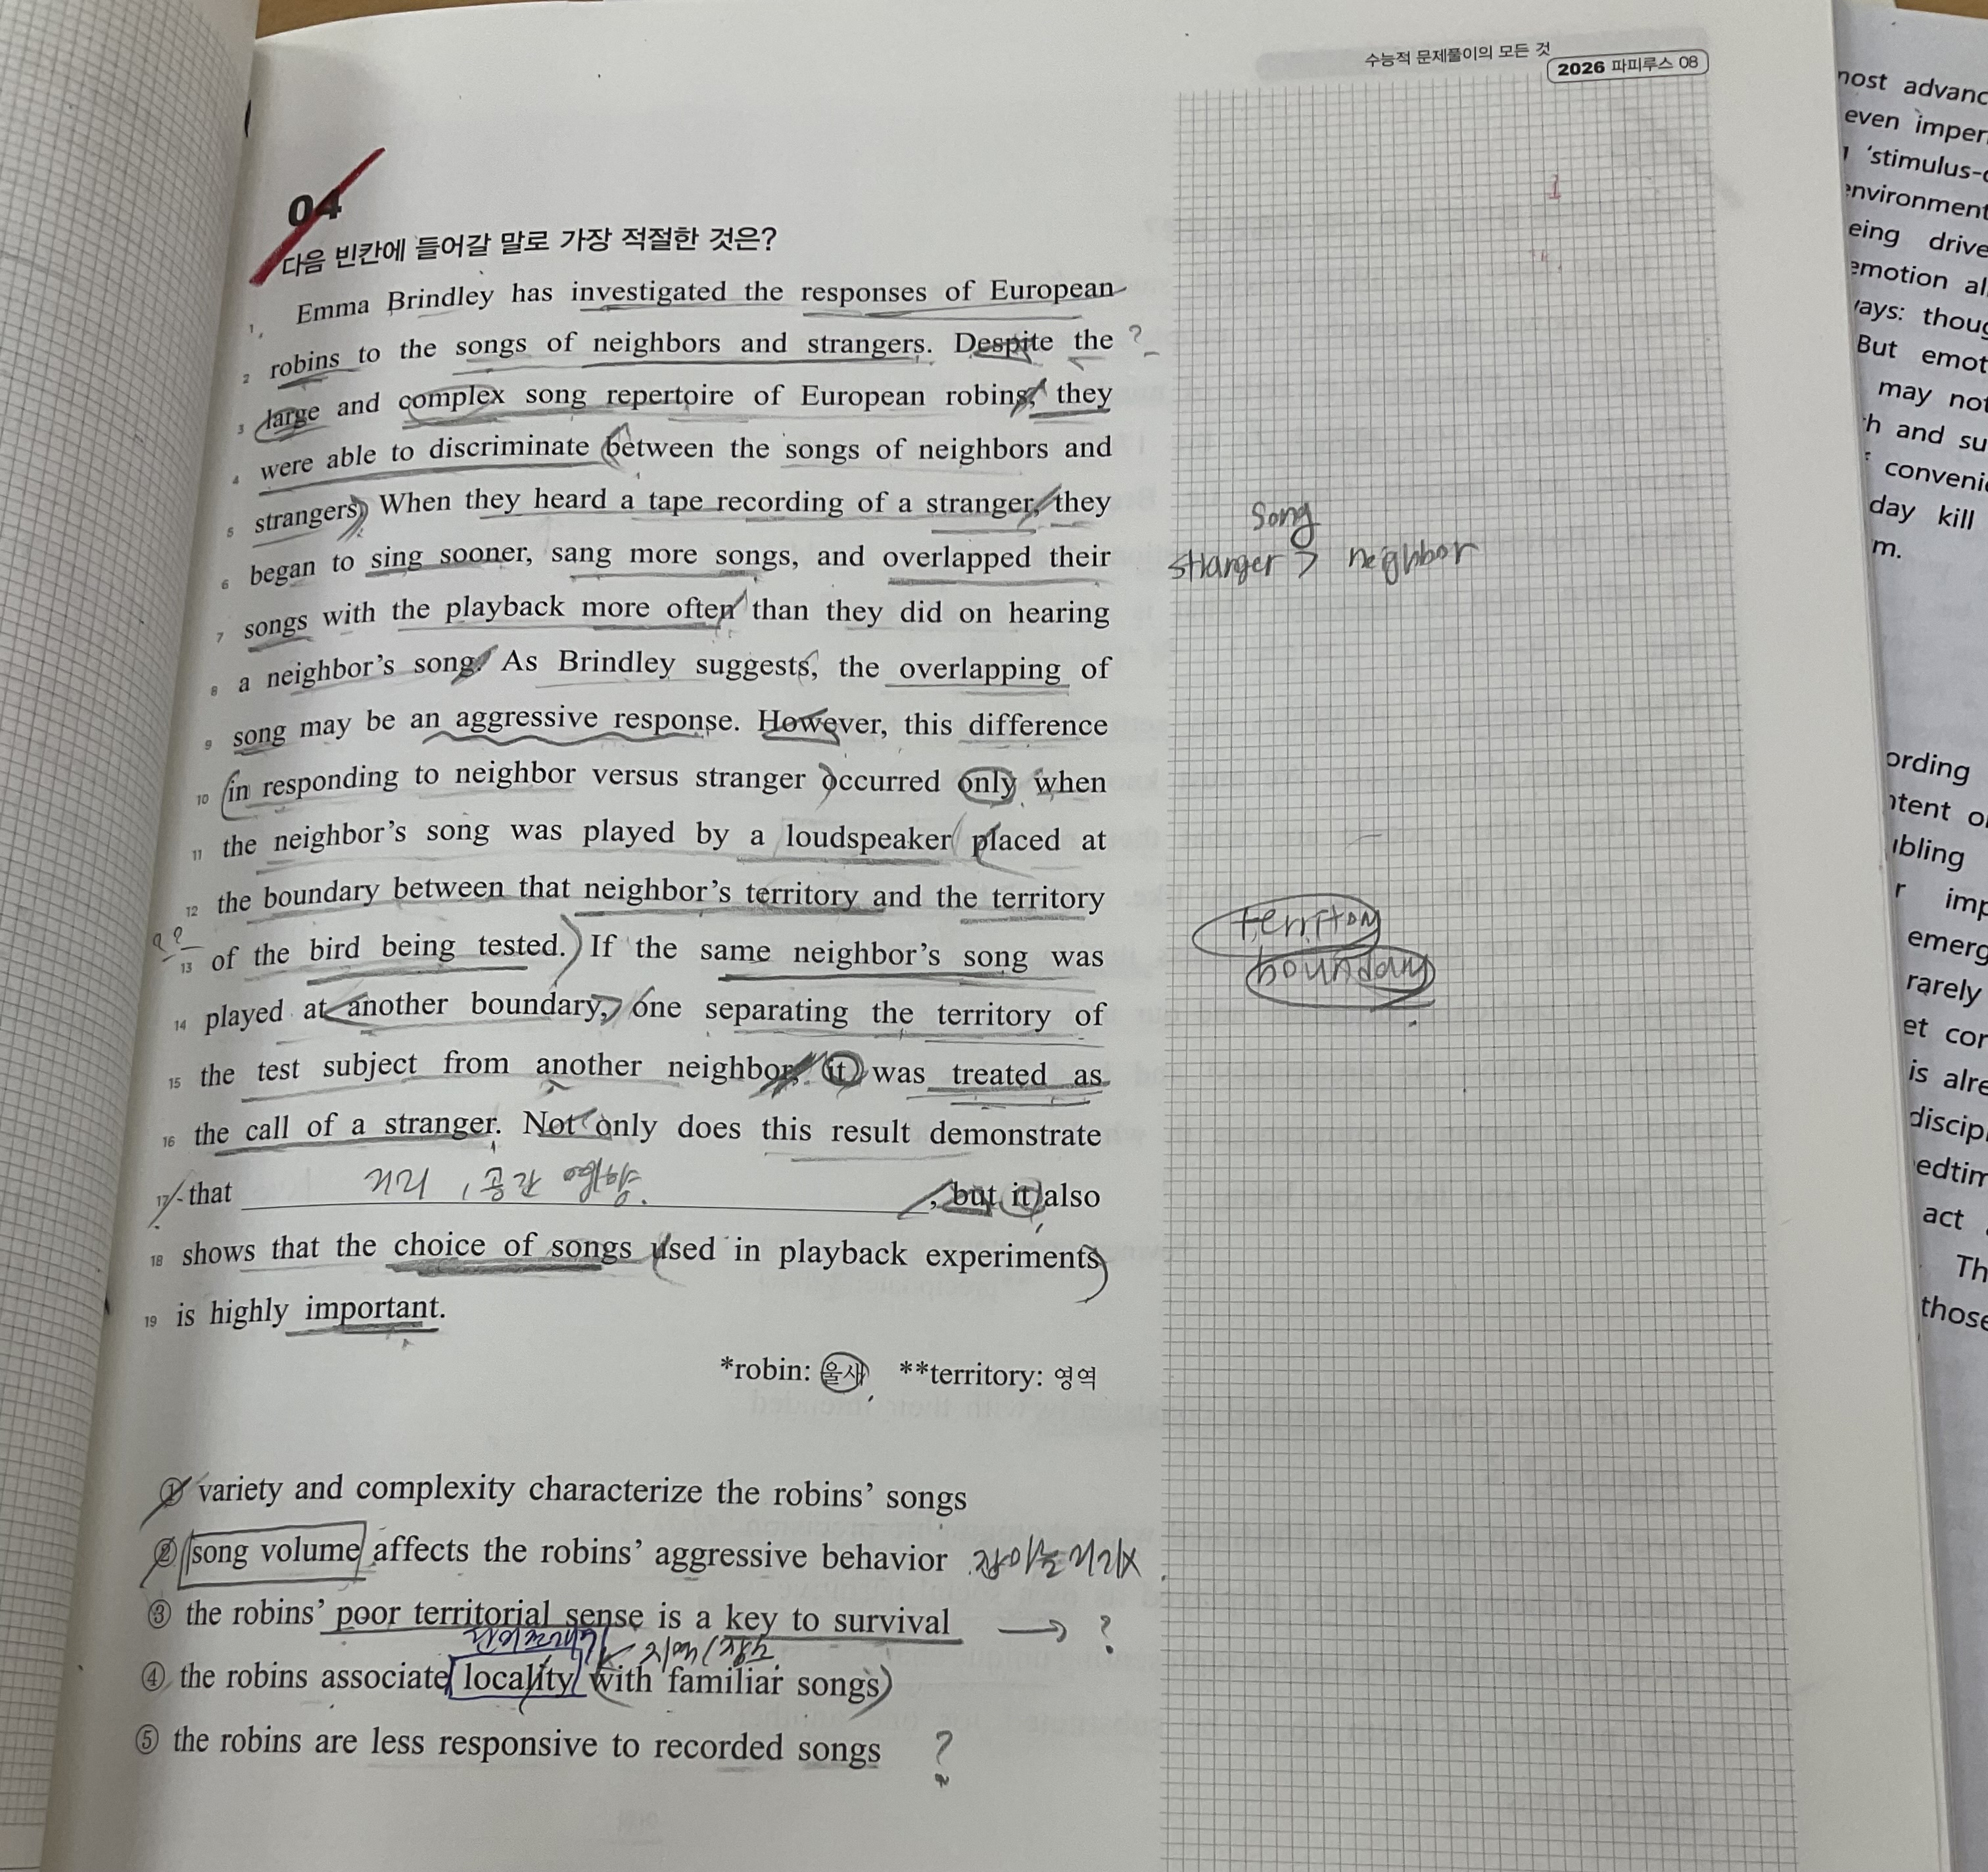 수능적 문제풀이의 모든 것
2026 파피루스 08
04
다음 빈칸에 들어갈 말로 가장 적절한 것은?
1 Emma Brindley has investigated the responses of European
2 robins to the songs of neighbors and strangers. Despite the ?
3 large and complex song repertoire of European robins, they
4 were able to discriminate between the songs of neighbors and
5 strangers. When they heard a tape recording of a stranger, they
6 began to sing sooner, sang more songs, and overlapped their
7 songs with the playback more often than they did on hearing
8 a neighbor's song. As Brindley suggests, the overlapping of
9 song may be an aggressive response. However, this difference
10 in responding to neighbor versus stranger occurred only when
11 the neighbor's song was played by a loudspeaker placed at
12 the boundary between that neighbor's territory and the territory
13 of the bird being tested. If the same neighbor's song was
14 played at another boundary, one separating the territory of
15 the test subject from another neighbor, it was treated as
16 the call of a stranger. Not only does this result demonstrate
17 that 거리, 공간 영향. , but it also
18 shows that the choice of songs used in playback experiments
19 is highly important.
*robin: 울새 **territory: 영역
song
stranger > neighbor
territory
boundary
① variety and complexity characterize the robins' songs
② song volume affects the robins' aggressive behavior
③ the robins' poor territorial sense is a key to survival → ?
④ the robins associate locality with familiar songs
⑤ the robins are less responsive to recorded songs ?
most advanc
even imper
'stimulus-
environment
eing drive
emotion al
ays: thoug
But emot
may not
h and su
convenie
day kill
m.
ording
ntent o
bling
r imp
emerg
rarely
et cor
is alre
discipl
edtim
act
Th
those